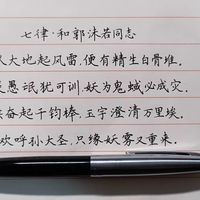 七律·和郭沫若同志
从大地起风雷,便有精生白骨堆.
是愚氓犹可训,妖为鬼蜮必成灾.
奋起千钧棒,玉宇澄清万里埃.
欢呼孙大圣,只缘妖雾又重来.